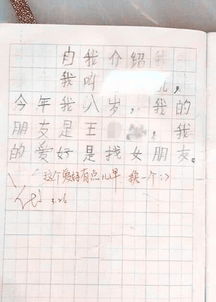 自我介绍
我叫
今年我八岁,我的
朋友是王 我
的爱好是找女朋友。
这个爱好有点儿早 换一个:)